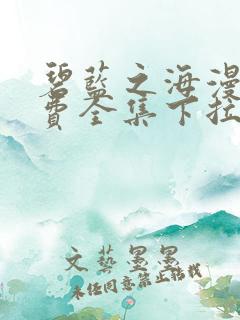 碧蓝之海漫
费全集下拉
文艺墨墨
未经同意禁止转载